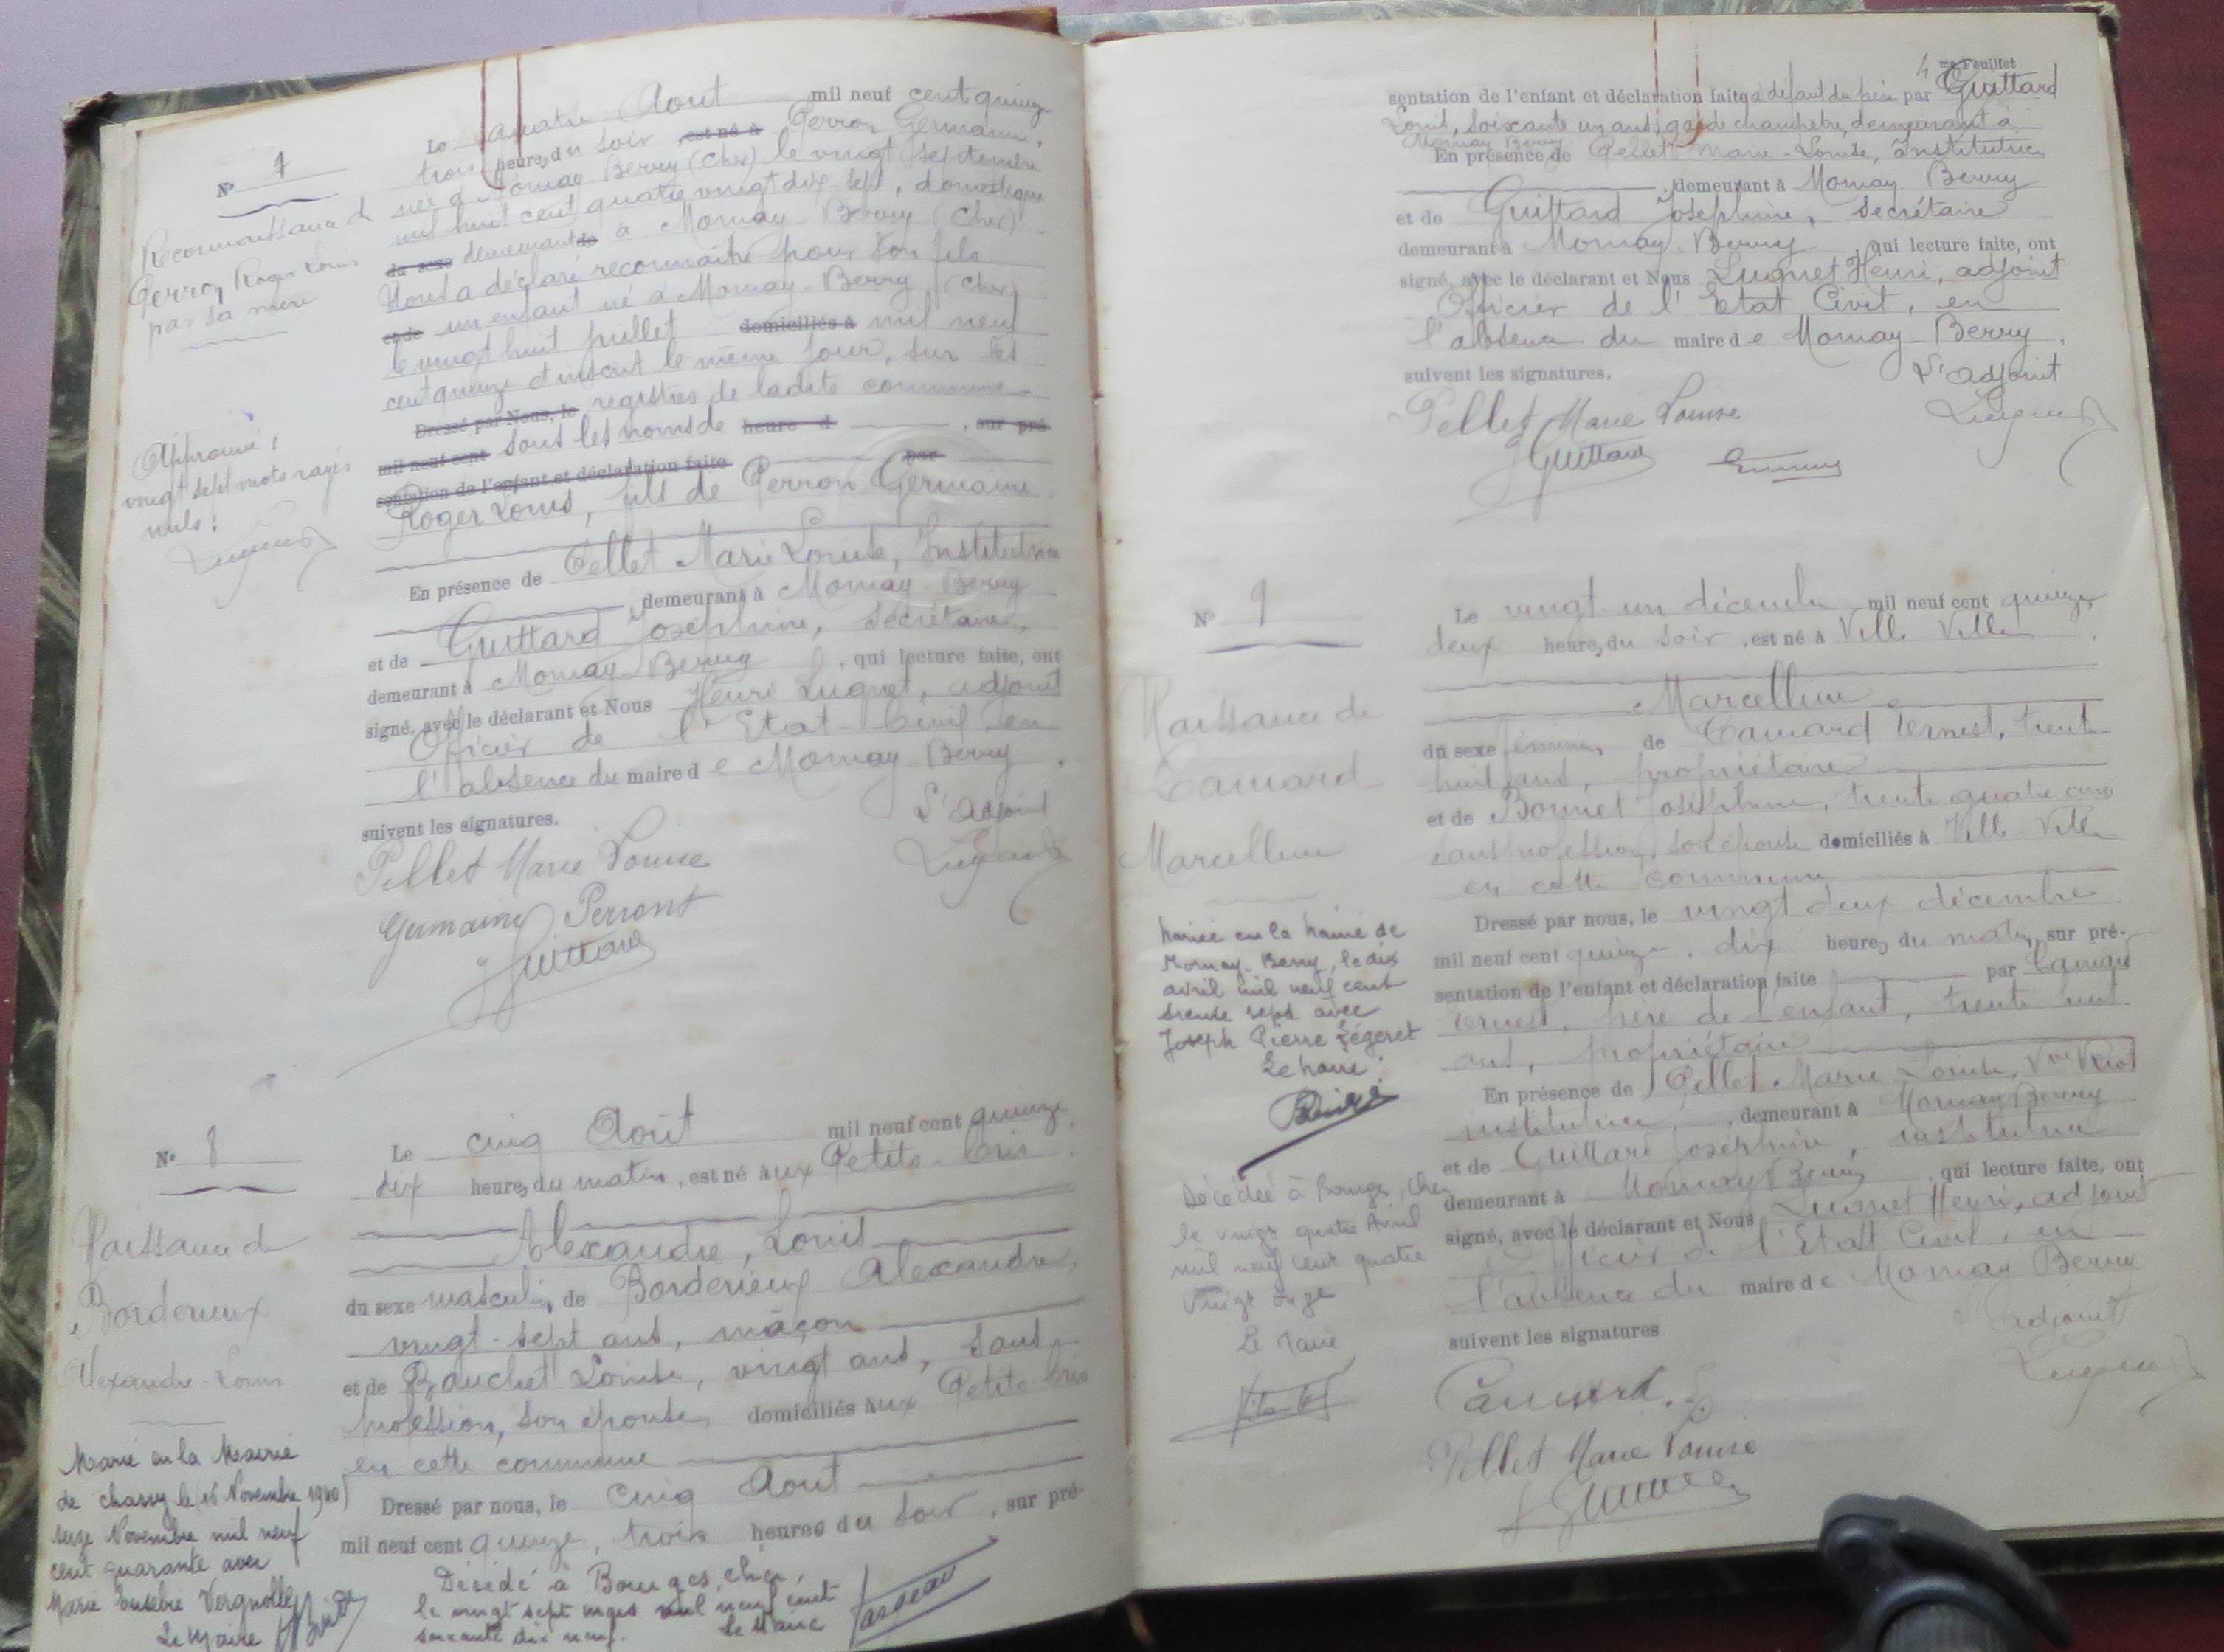 N° 7
Reconnaissance d
Perron Roger Louis
par sa mère
Approuvé
vingt sept mots rayés
nuls :
Le quatre Aout mil neuf cent quinze
trois heures du soir est né à Perron Germaine,
née à Mornay Berry (Cher) le vingt septembre
mil huit cent quatre vingt dix sept, domestique
du sexe demeurant de à Mornay-Berry (Cher)
Nous a déclaré reconnaitre pour son fils
et de un enfant né à Mornay-Berry (Cher)
le vingt huit juillet domiciliés à mil neuf
cent quinze et inscrit le même jour, sur les
Dressé par Nous, le registres de ladite commune
mil neuf cent sous les noms de heure d , sur pré-
sentation de l'enfant et déclaration faite par
Roger Louis, fils de Perron Germaine
En présence de Pellet Marie Louise, Institutrice
demeurant à Mornay Berry
et de Guittard Joséphine, secrétaire,
demeurant à Mornay-Berry , qui lecture faite, ont
signé, avec le déclarant et Nous Henri Lugnet, adjoint
Officier de l'Etat-Civil en
l'absence du maire de Mornay Berry .
suivent les signatures. L'adjoint
Pellet Marie Louise Lugnet
Germaine Perront
J Guittard
N° 8
Naissance de
Borderieux
Alexandre Louis
Marié en la Mairie
de Chassy le 16 Novembre 1940
seize Novembre mil neuf
cent quarante avec
Marie Eusebie Vergnolle
Le Maire
Le cinq Août mil neuf cent quinze,
dix heures du matin, est né aux Petits-Cris .
Alexandre, Louis
du sexe masculin, de Borderieux Alexandre,
vingt-sept ans, maçon
et de Bouchet Louise, vingt ans, sans
profession, son épouse, domiciliés aux Petits Cris
en cette commune
Dressé par nous, le cinq Aout
mil neuf cent quinze, trois heures du soir, sur pré-
Décédé à Bourges, Cher,
le vingt sept mars mil neuf cent
soixante dix neuf. Le Maire
4 me Feuillet
sentation de l'enfant et déclaration faite à défaut du père par Guittard
Louis, soixante un ans, garde champêtre, demeurant à
Mornay Berry
En présence de Pellet Marie-Louise, Institutrice
, demeurant à Mornay Berry
et de Guittard Joséphine, secrétaire
demeurant à Mornay-Berry , qui lecture faite, ont
signé, avec le déclarant et Nous Lugnet Henri, adjoint
Officier de l'Etat Civil, en
l'absence du maire de Mornay-Berry .
suivent les signatures. L'adjoint
Pellet Marie Louise Lugnet
J Guittard
N° 9
Naissance de
Camard
Marcelline
Mariée en la Mairie de
Mornay-Berry, le dix
avril mil neuf cent
trente sept avec
Joseph Pierre Légeret
Le Maire :
Décédée à Bourges, Cher
le vingt quatre Avril
mil neuf cent quatre
vingt onze
Le Maire
Le vingt-un décembre mil neuf cent quinze,
deux heures du soir, est né à Ville-Ville .
Marcelline
du sexe féminin, de Camard Ernest, trente
huit ans, propriétaire
et de Bonnet Joséphine, trente quatre ans
sans profession, son épouse domiciliés à Ville-Ville
en cette commune
Dressé par nous, le vingt deux décembre
mil neuf cent quinze, dix heures du matin, sur pré-
sentation de l'enfant et déclaration faite par Camard
Ernest, père de l'enfant, trente huit
ans, propriétaire
En présence de Pellet Marie Louise, Vve
institutrice, demeurant à Mornay Berry
et de Guittard Joséphine, institutrice
demeurant à Mornay Berry , qui lecture faite, ont
signé, avec le déclarant et Nous Lugnet Henri, adjoint
Officier de l'Etat Civil, en
l'absence du maire de Mornay Berry
suivent les signatures L'adjoint
Camard. Lugnet
Pellet Marie Louise
J Guittard